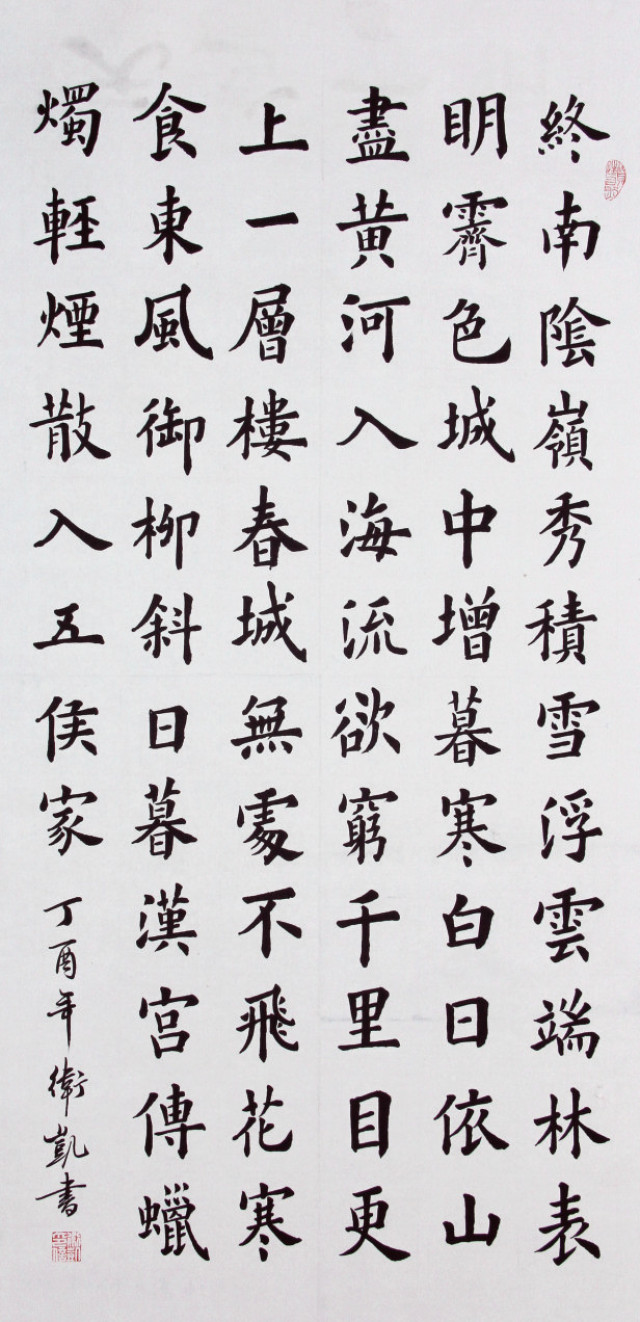 終南陰嶺秀積雪浮雲端林表
明霽色城中增暮寒白日依山
盡黃河入海流欲窮千里目更
上一層樓春城無處不飛花寒
食東風御柳斜日暮漢宮傳蠟
燭輕煙散入五侯家
丁酉年衛凱書